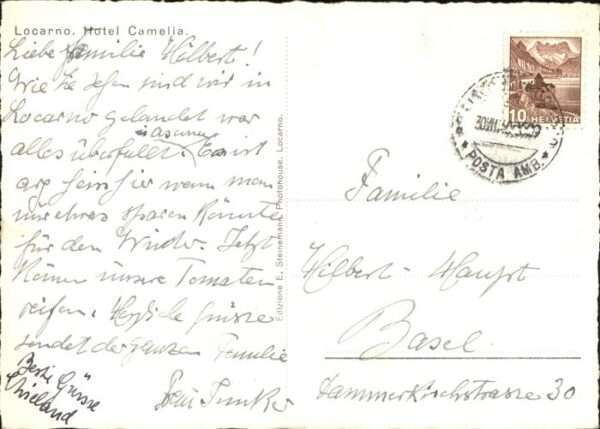 Locarno. Hotel Camelia.
Liebe Familie Hilbert!
Wie Sie sehen sind wir in
Locarno gelandet war
alles überfüllt. Es ist
arg hier wenn man
nur etwas sparen könnte
für den Winter. Jetzt
können unsre Tomaten
reifen. Herzliche Grüsse
sendet der ganzen Familie
Frau
Beste Grüsse
Edizione E. Steinemann, Photohouse, Locarno.
10 HELVETIA
POSTA AMB.
Familie
Hilbert-Haupt
Basel
Lammerkirchstrasse 30